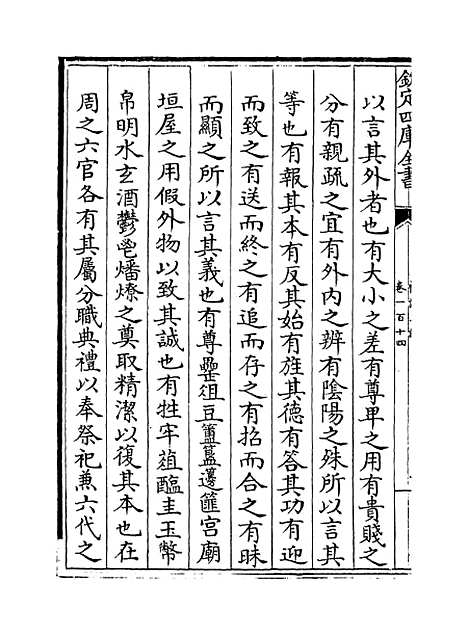 欽定四庫全書
卷一百十四
以言其外者也有大小之差有尊卑之用有貴賤之
分有親疏之宜有外内之辨有陰陽之殊所以言其
等也有報其本有反其始有旌其德有答其功有迎
而致之有送而終之有追而存之有招而合之有昧
而顯之所以言其義也有尊罍俎豆簠簋籩篚宮廟
垣屋之用假外物以致其誠也有牲牢葅醢圭玉幣
帛明水玄酒鬱鬯燔燎之奠取精潔以復其本也在
周之六官各有其屬分職典禮以奉祭祀兼六代之